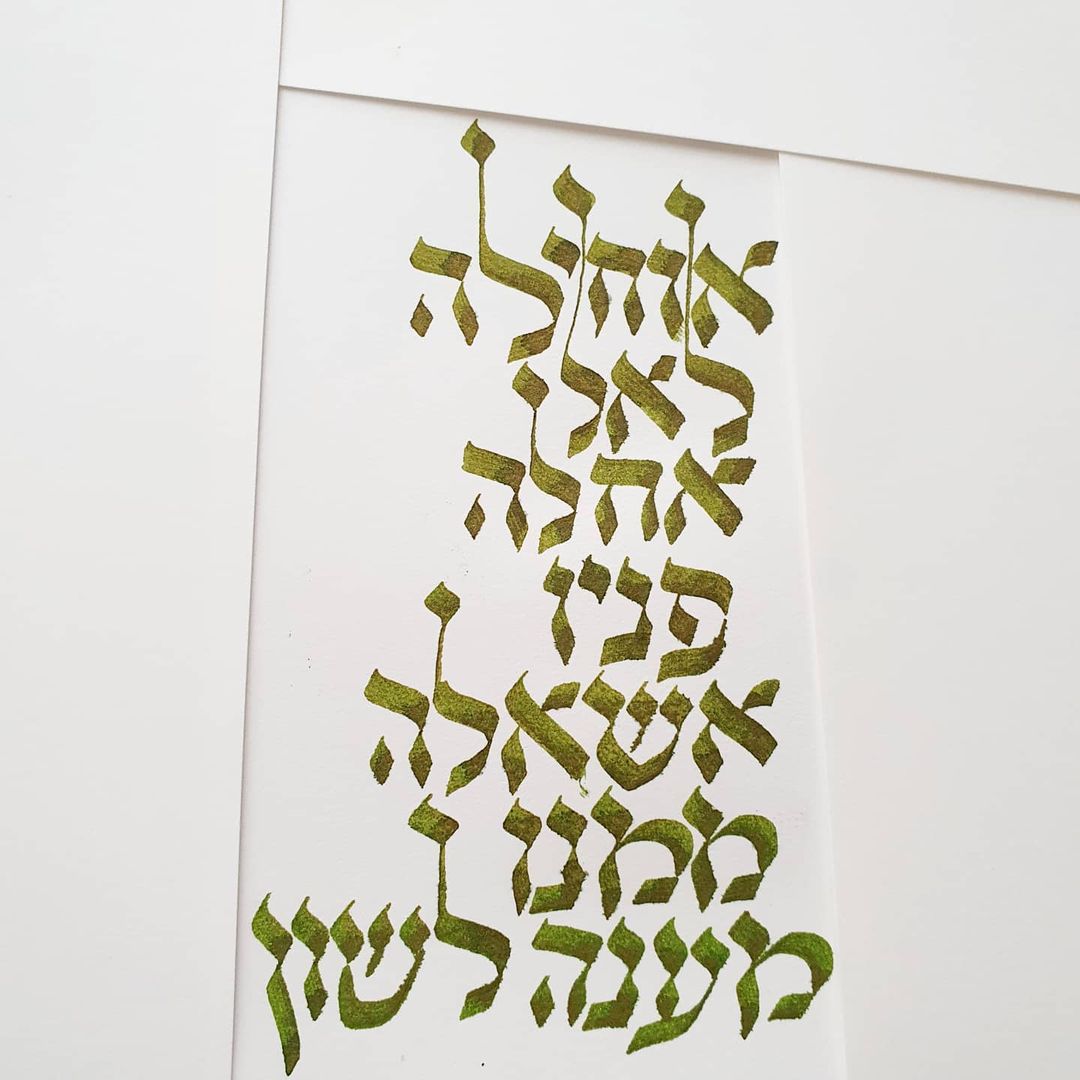 אוחילה
לאל
אחלה
פניו
אשאלה
ממנו
מענה לשון